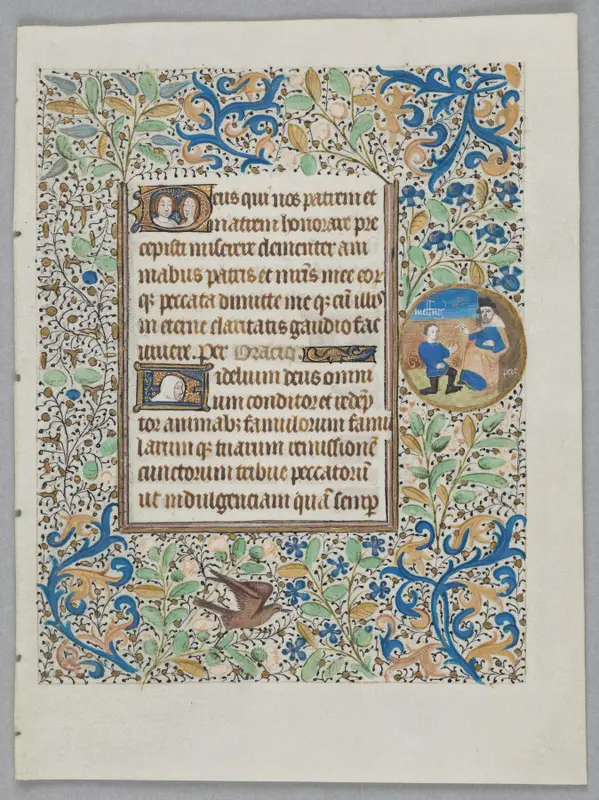 Deus qui nos patrem et
matrem honorare pre
cepisti miserere clementer ani
mabus patris et mr̄is mee eor
q̨ peccata dimitte me q̨ cū illis
in eterne claritatis gaudio fac
uiuere. Per Oracio
Fidelium deus omni
um conditor et redēp
tor animabȝ famulorum famu
larum q̨ tuarum remissionē
cunctorum tribue peccatorū
ut indulgenciam quā semꝑ